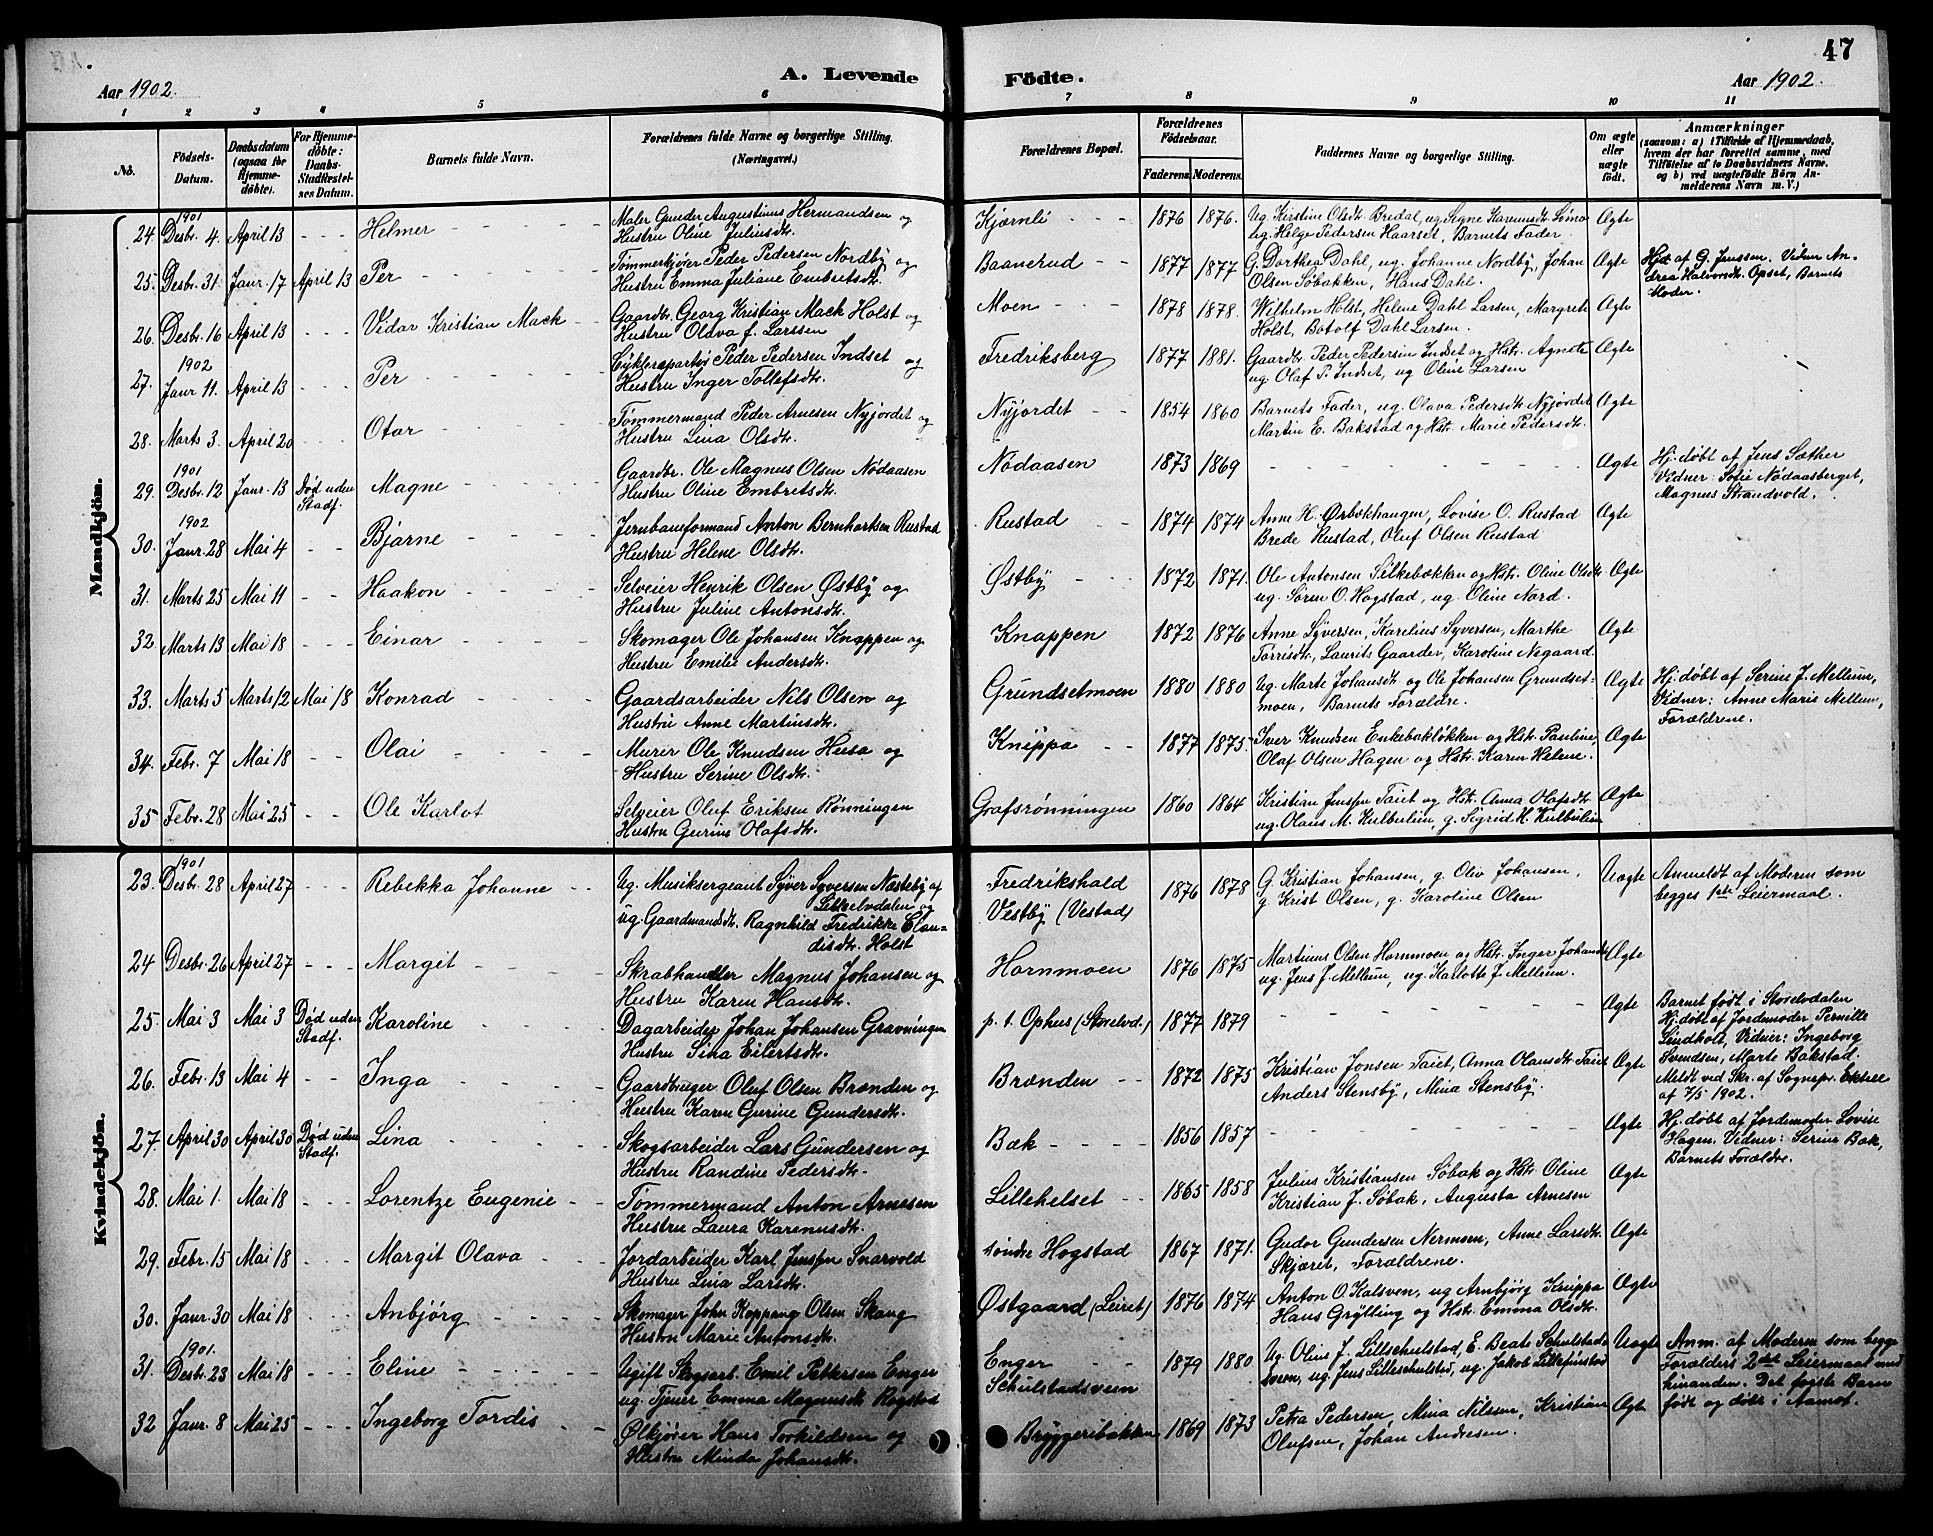 47
Aar 1902.
A. Levende
Födte.
Aar 1902.
1 2 3 4 5 6 7 8 9 10 11
No.
Födsels-
Datum.
Daabsdatum
(ogsaa för
Hjemme-
döbte).
For Hjemme-
döbte:
Daabs-
Stadfestel-
ses Datum.
Barnets fulde Navn.
Forældrenes fulde Navne og borgerlige Stilling.
(Næringsvei.)
Forældrenes Bopæl.
Forældrenes
Födselsaar.
Faderens. Moderens.
Faddernes Navne og borgerlige Stilling.
Om ægte
eller
uægte
födt.
Anmærkninger
(saasom: a) i Tilfælde af Hjemmedaab,
hvem der har forrettet samme, med
Tilföielse af to Daabsvidners Navne,
og b) ved uægtefödte Börn An-
melderens Navn m. V.)
Mandkjön.
1901
24. Desbr. 4. April 13 - - - Helmer - - - Maler Gunder Augustinus Hermandsen og Kjærnli - - - 1876 1876. Ug. Kirstine Olsdt. Bredal, ug. Signe Karensdt. Ægte
Hustru Oline Juliusdt. ug. Helge Pedersen Haarset, Barnets Fader.
25. Desbr. 31 Janr. 17 April 13 Per - - - Tømmerkjører Peder Pedersen Nordby og Baanerud - - 1877 1877 G. Dorthea Dahl, ug. Johanne Nordby, Johan Ægte Hjd. af G. Jenssen. Vidner An-
Hustru Emma Juliane Embretsdt. Olsen Søbakken, Hans Dahl. drea Halvorsdt. Opset, Barnets
Moder.
26. Desbr. 16 April 13 - - - Vidar Kristian Mack - - Gaardbr. Georg Kristian Mack Holst og Moen - - - 1878 1878. Wilhelm Holst, Helene Dahl Larsen, Margrete Ægte
Hustru Olava f. Larssen Holst, Botolf Dahl Larsen.
1902
27. Janr. 11. April 13 - - - Per - - - Cykkelreparatør Peder Pedersen Indset og Fredriksberg 1877 1881. Gaardbr. Peder Pedersen Indset og Hstr. Agnete Ægte
Hustru Inger Tollefsdt. ug. Olaf P. Indset, ug Oline Larsen
28. Marts 3. April 20 - - - Otar - - - Tømmermand Peder Arnesen Nyjordet og Nyjordet - - 1854 1860 Barnets Fader, ug. Olava Pedersdt. Nyjordet Ægte
Hustru Lina Olsdt. Martin E. Bakstad og Hstr. Marie Pedersdt.
1901
29. Desbr. 12 Janr. 13 Død uden Magne - - - Gaardbr. Ole Magnus Olsen Nødaasen Nødaasen 1873 1869 - - - Ægte Hj. døbt af Jens Sæther
Stadf. Hustru Oline Embretsdt. Vidner: Sofie Nødaasberget,
Magnus Strandvold.
1902
30. Janr. 28 Mai 4 - - Bjarne - - - Jernbaneformand Anton Bernhartsen Rustad Rustad - - 1874 1874 Anne H. Ørbækhaugen, Lovise O. Rustad Ægte
Hustru Helene Olsdt. Brede Rustad, Oluf Olsen Rustad
31. Marts 25 Mai 11 - - - Haakon - - - Selveier Henrik Olsen Østby og Østby - - - 1872 1871. Ole Antonsen Silkebækken og Hstr. Oline Olsdt. Ægte
Hustru Juline Antonsdt. ug. Søren O. Hogstad, ug. Oline Nord.
32. Marts 13 Mai 18 - - - Einar - - - Skomager Ole Johansen Knappen og Knappen 1872 1876 Anne Syversen, Karelius Syversen, Marthe Ægte
Hustru Emilie Andersdt. Torrisdt., Laurits Gaarder, Karoline Negaard
33. Marts 5 Marts 12 Mai 18 Konrad - - - Gaardsarbeider Nils Olsen og Grundsetmoen 1880 1880 Ug. Marte Johansdt. og Ole Johansen Grundset- Ægte Hj. døbt af Serine J. Mellum,
Hustru Anne Martinsdt. moen, Barnets Forældre. Vidner: Anne Marie Mellum,
Forældrene.
34. Febr. 7 Mai 18 - - Olai - - - Murer Ole Knudsen Husa og Knippa - - 1877 1875. Iver Knudsen Enkebakløkken og Hstr. Pauline, Ægte
Hustru Serine Olsdt. Olaf Olsen Hagen og Hstr. Karen Helene.
35 Febr. 28 Mai 25 - - Ole Karlot Selveier Oluf Eriksen Rønningen Grafsrønningen 1860 1864 Kristian Jenssen Taiet og Hstr. Anna Olafsdt. Ægte
Hustru Gurine Olafsdt. ug. Olaus M. Kulbulien, g. Sigrid H. Kulbulien
Kvindekjön.
1901
23. Desbr. 28 April 27 - - - Rebekka Johanne - - Ug. Musiksergeant Syver Syversen Næsteby af Fredrikshald 1876 1878 G. Kristian Johansen, g. Oliv Johansen, Uægte Anmeldt af Moderen som
Lillelvdalen og Vestby (Vestad) g. Krist Olsen, g. Karoline Olsen begges 1ste Leiermaal.
ug. Gaardmandsdt. Ragnhild Fredrikke Clau-
disdt. Holst
24 Desbr. 26 April 27 - - - Margit - - - Skrabhandler Magnus Johansen og Hornmoen 1876 1875 Martinus Olsen Hornmoen og Hstr. Inger Johansdt. Ægte
Hustru Karen Hansdt. ug. Jens J. Mellum, ug. Karlotte J. Mellum.
25. Mai 3 Mai 3 Død uden Karoline - - - Dagarbeider Johan Johansen Gravningen p. t. Ophus (Storelvd.) 1877 1879 - - - Ægte Barnet født i Storelvdalen
Stadf. Hustru Sina Eilertsdt. Hj. døbt af Jordemoder Pernille
Lindholt, Vidner: Ingeborg
Svendsen, Marte Bakstad.
Meldt ved Skr. af Sognepr.
af 7/5 1902.
26. Febr. 13 Mai 4 - - Inga - - - Gaardbruger Oluf Olsen Brænden og Brænden - - 1872 1875 Kristian Jonsen Taiet, Anna Olausdt. Taiet Ægte
Hustru Karen Gurine Gundersdt. Anders Stensby, Mina Stensby.
27. April 30 April 30 Død uden Lina - - - Skogsarbeider Lars Gundersen og Bæk - - - 1856 1857 - - - Ægte Hj. døbt af Jordemoder Lovise
Stadf. Hustru Randine Pedersdt. Hagen. Vidner: Serine Bæk,
Barnets Forældre.
28. Mai 1. Mai 18 - - - Lorentze Eugenie - - Tømmermand Anton Arnesen Lillehelset - - 1865 1858 Julius Kristiansen Søbak og Hstr. Oline Ægte
Hustru Laura Karenusdt. Kristian J. Søbak, Augusta Arnesen
29. Febr. 15 Mai 18 - - - Margit Olava - Jordarbeider Karl Jenssen Snarvold søndre Hogstad 1867 1871. Gudor Gundersen Nermoen, Anne Larsdt. Ægte
Hustru Lina Larsdt. Skjæret, Forældrene.
30. Janr. 30 Mai 18 - - - Anbjörg - - - Skomager John Koppang Olsen Skaug Østgaard (Leiret) 1876 1874 Anton O. Kalsven, ug Arnbjørg Knippa Ægte
Hustru Marie Antonsdt. Hans Grytting og Hstr. Emma Olsdt.
1901.
31. Desbr. 23 Mai 18 - - - Eline - - - Ugift Skogsarb. Emil Pettersen Enger Enger - - 1879 1880 Ug. Olius J. Lilleschulstad, E. Beate Schulstads Uægte Anm. af Moderen som begge
ug. Tjener Emma Magnusdt. Rogstad Schulstadsveen sveen, ug. Jens Lilleschulstad, ug. Jakob Forælders 2det Leiermaal med
hinanden. Det første Barn
32 Janr. 8 Mai 25 - - - Ingeborg Tordis - - Ølkjører Hans Torkildsen og Bryggeribakken 1869 1873 Petra Pedersen, Mina Nilssen, Kristian Ægte født og døbt i Aamot.
Hustru Minda Johansdt. Olufsen, Johan Andresen.